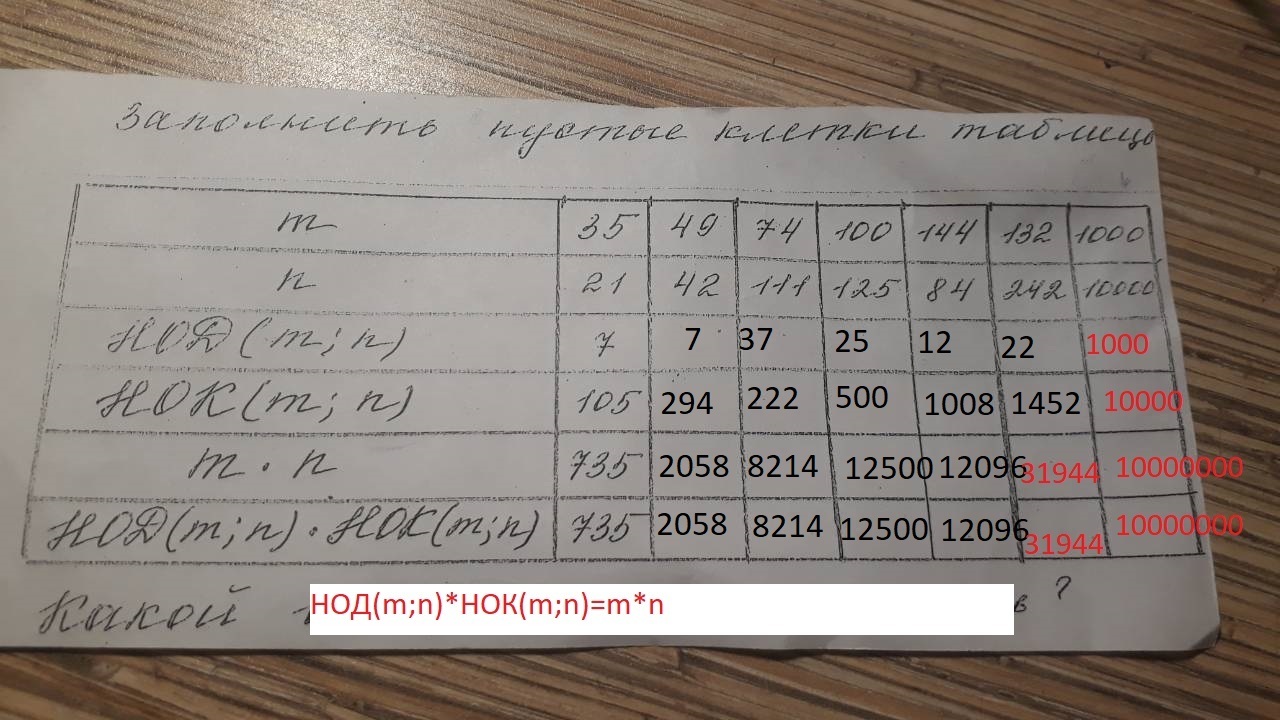 Заполнить пустые клетки таблицы
m 35 49 74 100 144 132 1000
n 21 42 111 125 84 242 10000
НОД(m;n) 7 7 37 25 12 22 1000
НОК(m;n) 105 294 222 500 1008 1452 10000
m·n 735 2058 8214 12500 12096 31944 10000000
НОД(m;n)·НОК(m;n) 735 2058 8214 12500 12096 31944 10000000
Какой ?
НОД(m;n)*НОК(m;n)=m*n